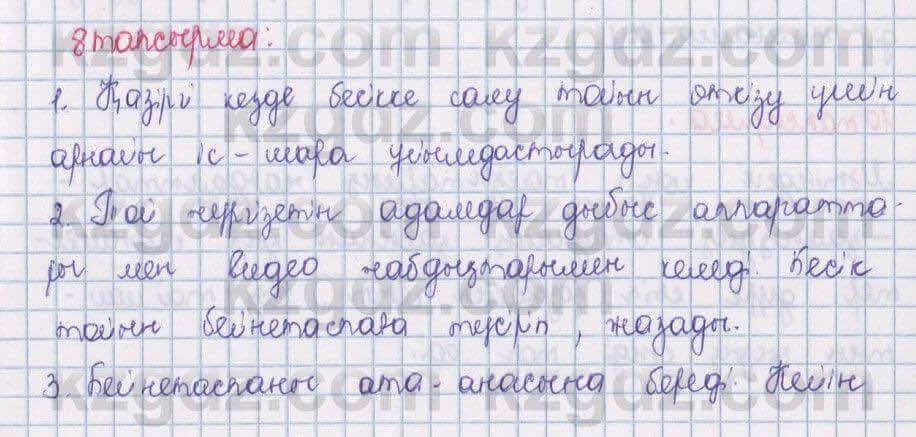 8 тапсырма:
1. Қазіргі кезде бесікке салу тойын өткізу үшін
арнайы іс-шара ұйымдастырады.
2. Той жүргізетін адамдар дыбыс аппаратта-
ры мен видео жабдықтарымен келеді. Бесік
тойын бейнетаспаға түсіріп, жазады.
3. Бейнетаспаны ата-анасына береді. Кейін